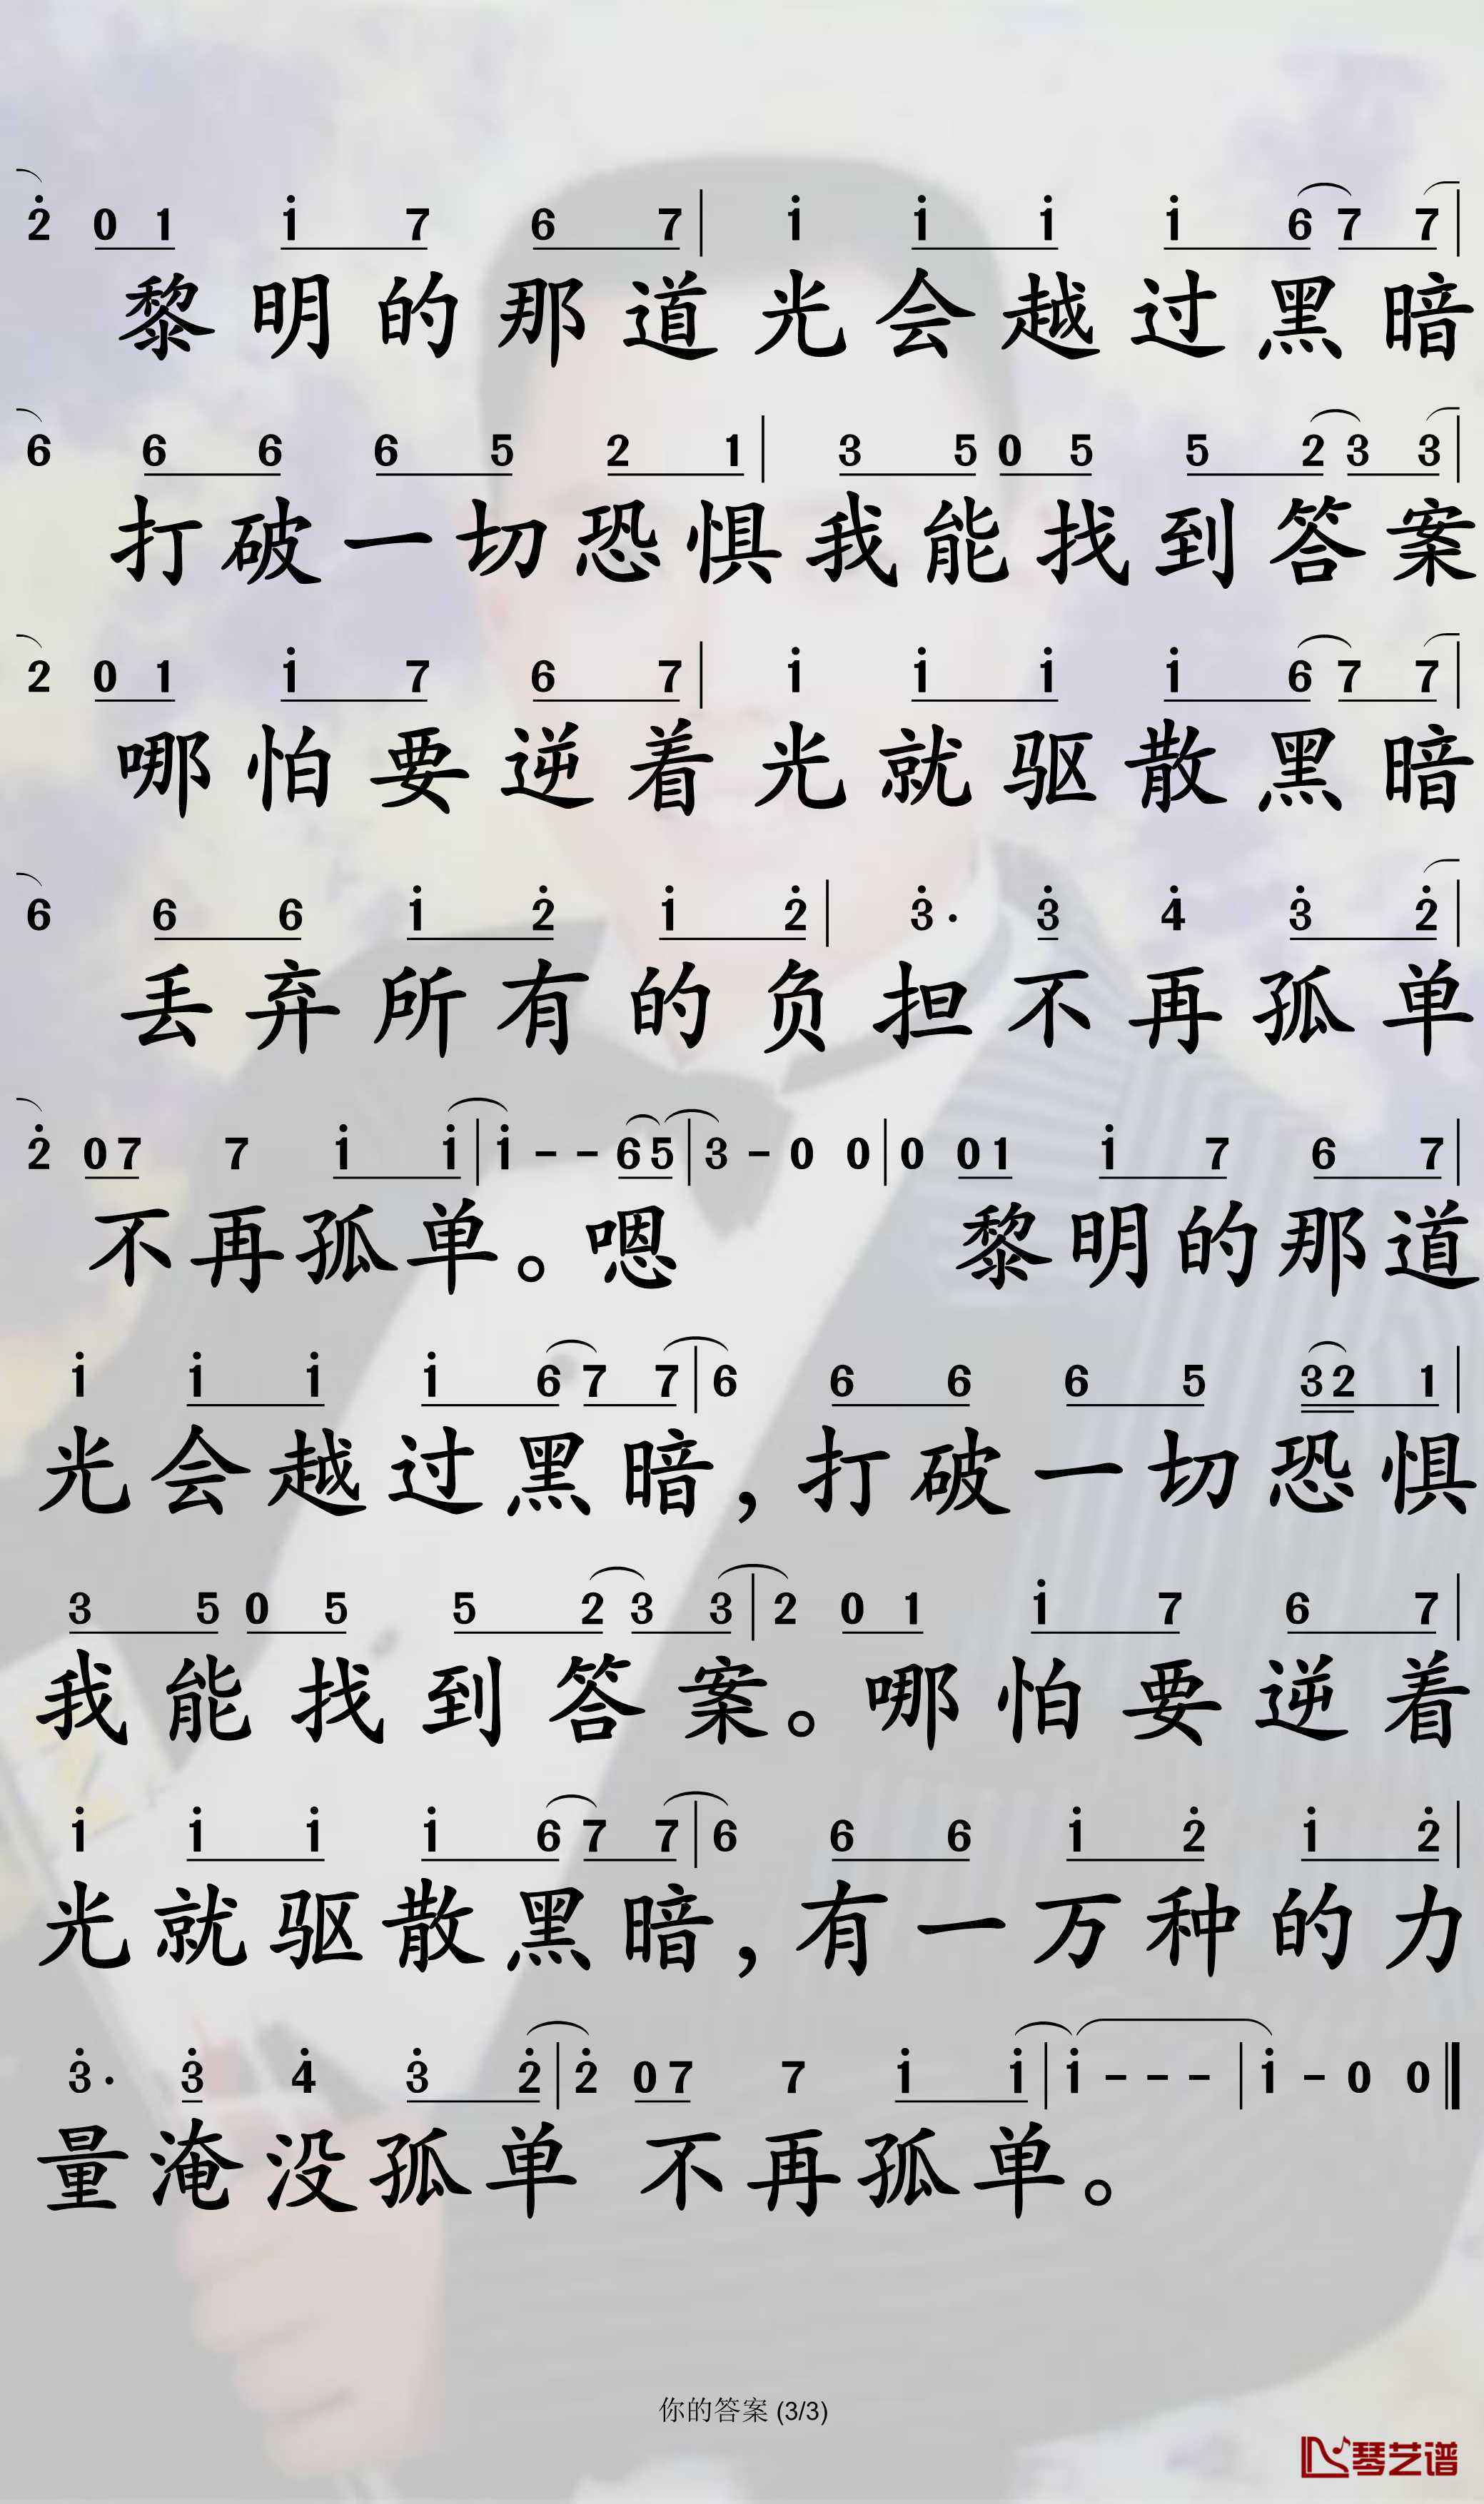 2̇ 0 1 1̇ 7 6 7 | 1̇ 1̇ 1̇ 1̇ 6 7 7 |
黎明的那道光会越过黑暗
6 6 6 6 5 2 1 | 3 5 0 5 5 2 3 3 |
打破一切恐惧我能找到答案
2 0 1 1̇ 7 6 7 | 1̇ 1̇ 1̇ 1̇ 6 7 7 |
哪怕要逆着光就驱散黑暗
6 6 6 1̇ 2̇ 1̇ 2̇ | 3̇· 3̇ 4̇ 3̇ 2̇ |
丢弃所有的负担不再孤单
2̇ 0 7 7 1̇ 1̇ | 1̇ - - 6 5 | 3 - 0 0 | 0 0 1 1̇ 7 6 7 |
不再孤单。嗯 黎明的那道
1̇ 1̇ 1̇ 1̇ 6 7 7 | 6 6 6 6 5 3 2 1 |
光会越过黑暗,打破一切恐惧
3 5 0 5 5 2 3 3 | 2 0 1 1̇ 7 6 7 |
我能找到答案。哪怕要逆着
1̇ 1̇ 1̇ 1̇ 6 7 7 | 6 6 6 1̇ 2̇ 1̇ 2̇ |
光就驱散黑暗,有一万种的力
3̇· 3̇ 4̇ 3̇ 2̇ | 2̇ 0 7 7 1̇ 1̇ | 1̇ - - - | 1̇ - 0 0 ‖
量淹没孤单 不再孤单。
你的答案 (3/3)
琴艺谱